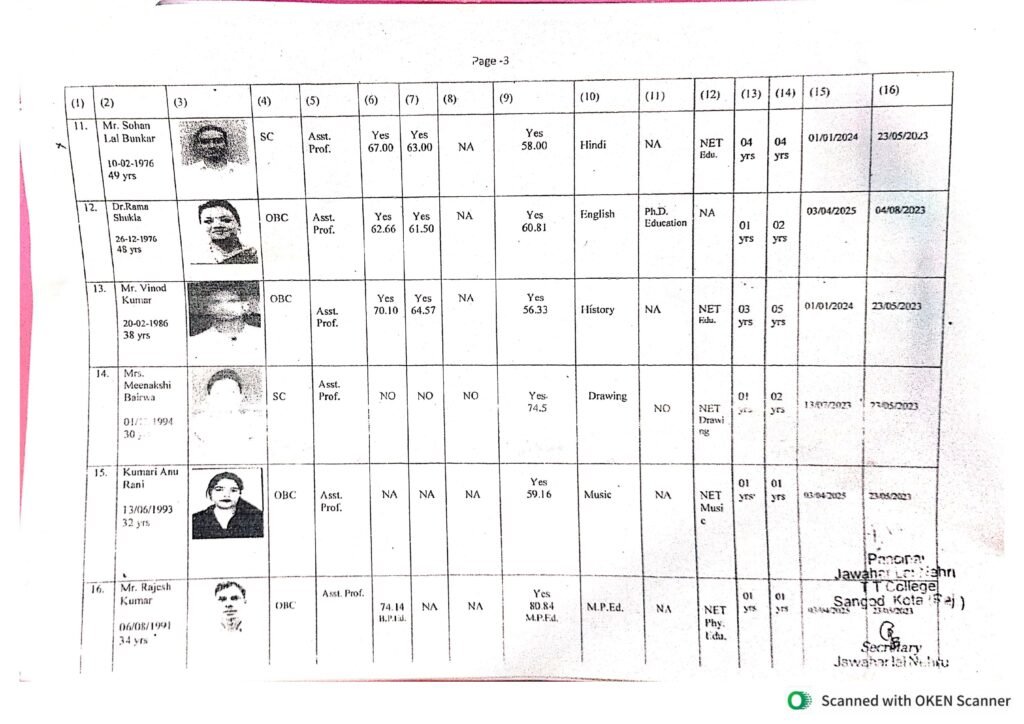 Page -3
(1) (2) (3) (4) (5) (6) (7) (8) (9) (10) (11) (12) (13) (14) (15) (16)
11. Mr. Sohan Lal Bunkar 10-02-1976 49 yrs SC Asst. Prof. Yes 67.00 Yes 63.00 NA Yes 58.00 Hindi NA NET Edu. 04 yrs 04 yrs 01/01/2024 23/05/2023
12. Dr.Rama Shukla 26-12-1976 48 yrs OBC Asst. Prof. Yes 62.66 Yes 61.50 NA Yes 60.81 English Ph.D. Education NA 01 yrs 02 yrs 03/04/2025 04/08/2023
13. Mr. Vinod Kumar 20-02-1986 38 yrs OBC Asst. Prof. Yes 70.10 Yes 64.57 NA Yes 56.33 History NA NET Edu. 03 yrs 05 yrs 01/01/2024 23/05/2023
14. Mrs. Meenakshi Bairwa 1994 30 SC Asst. Prof. NO NO NO Yes 74.5 Drawing NO NET Drawi ng 01 yrs 02 yrs 13/07/2023 23/05/2023
15. Kumari Anu Rani 13/06/1993 32 yrs OBC Asst. Prof. NA NA NA Yes 59.16 Music NA NET Musi c 01 yrs 01 yrs 03/04/2025 23/05/2023
16. Mr. Rajesh Kumar 06/08/1991 34 yrs OBC Asst. Prof. 74.14 B.P.Ed. NA NA Yes 80.84 M.P.Ed. M.P.Ed. NA NET Phy. Edu. 01 yrs 01 yrs 03/04/2025 23/05/2023
Jawahar Lal Nehru
T T College
Sangod Kota (Raj)
Secretary
Jawahar lal Nehru
Scanned with OKEN Scanner